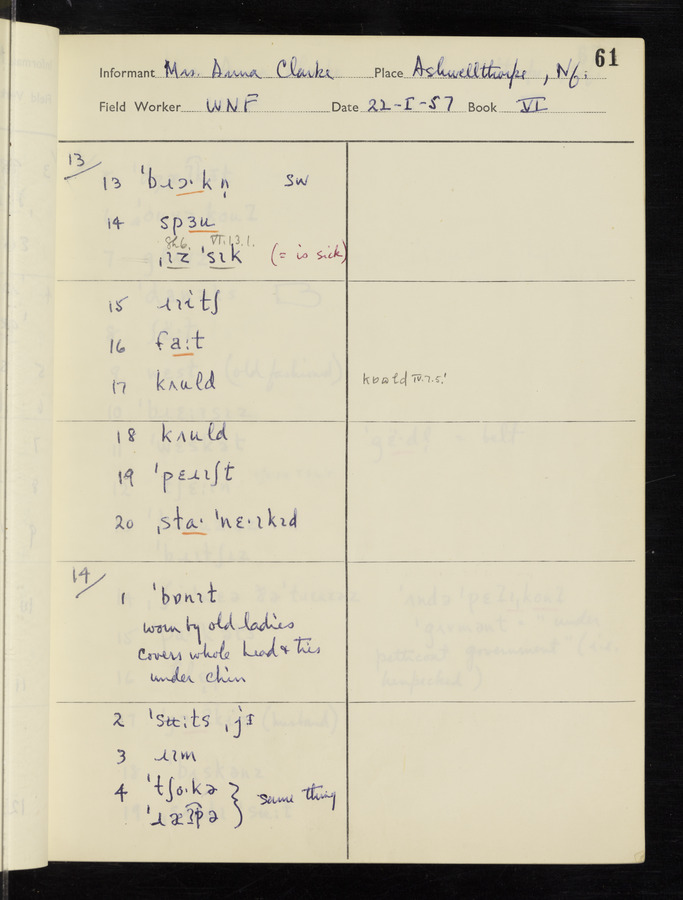 61
Informant Mrs. Anna Clarke Place Ashwellthorpe, Nf:
Field Worker WNF Date 22-I-57 Book VI
13
13 'bɹɔ·kn̩ sw
14 spɜu
8h6. VI.13.1.
ˌɪz 'sɪk (= is sick)
15 ɹɪitʃ
16 fa:t
17 kʌuld kʊəłd IV.7.5.'
18 kʌuld
19 'pɛɹɪʃt
20 ˌsta· 'nɛ·ɪkɪd
14
1 'bɒnɪt
worn by old ladies
covers whole head & ties
under chin
2 'sʉ:ts ˌjɪ
3 ɹɪm
4 'tʃo·kə } same thing
'ɹæʔpə